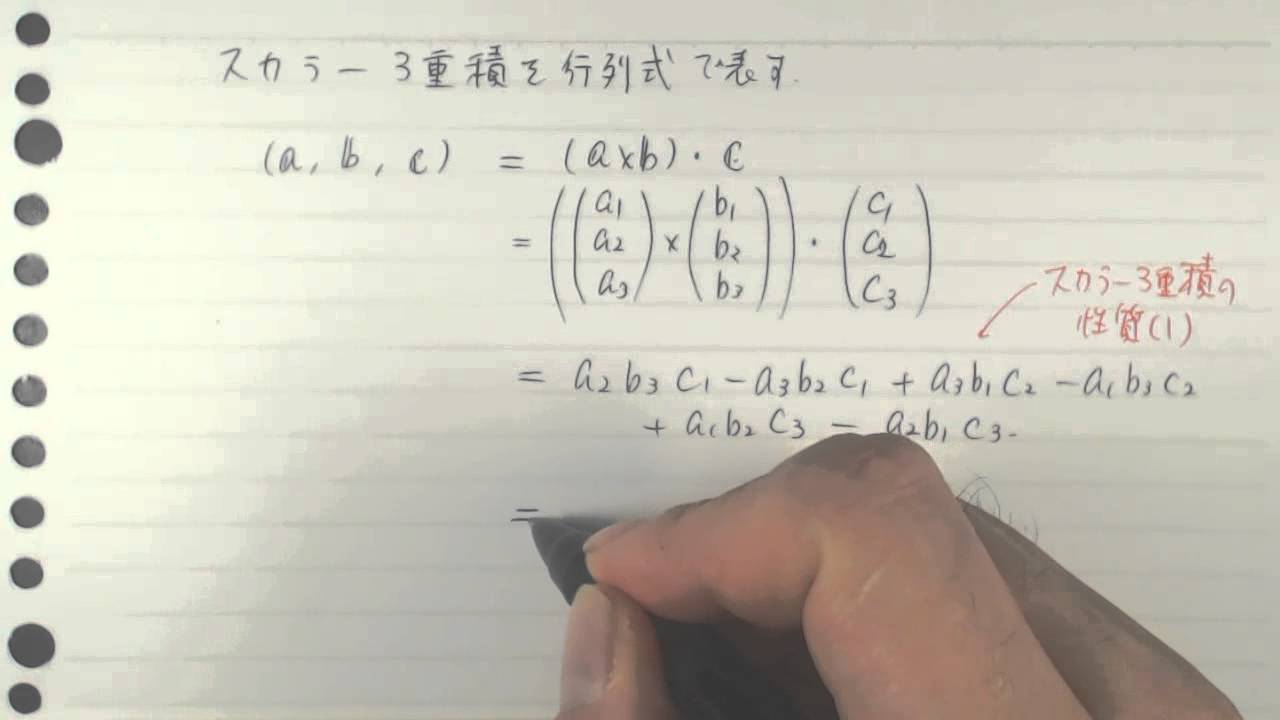 スカラー3重積を行列式で表す.
(a, b, c) = (a×b)・c
= ((a1 a2 a3) × (b1 b2 b3))・(c1 c2 c3)
スカラー3重積の
性質(1)
= a2 b3 c1 - a3 b2 c1 + a3 b1 c2 - a1 b3 c2
+ a1 b2 c3 - a2 b1 c3.
=